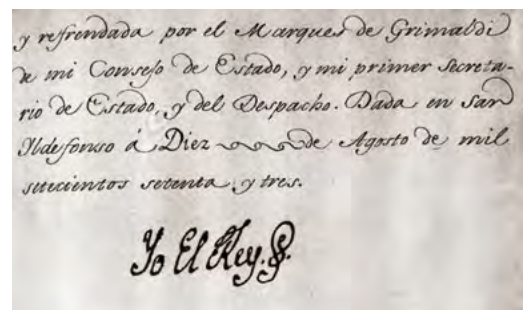 y refrendada por el Marques de Grimaldi
de mi Consejo de Estado, y mi primer Secreta-
rio de Estado, y del Despacho. Dada en San
Ildefonso á Diez de Agosto de mil
setecientos setenta y tres.
Yo El Rey.